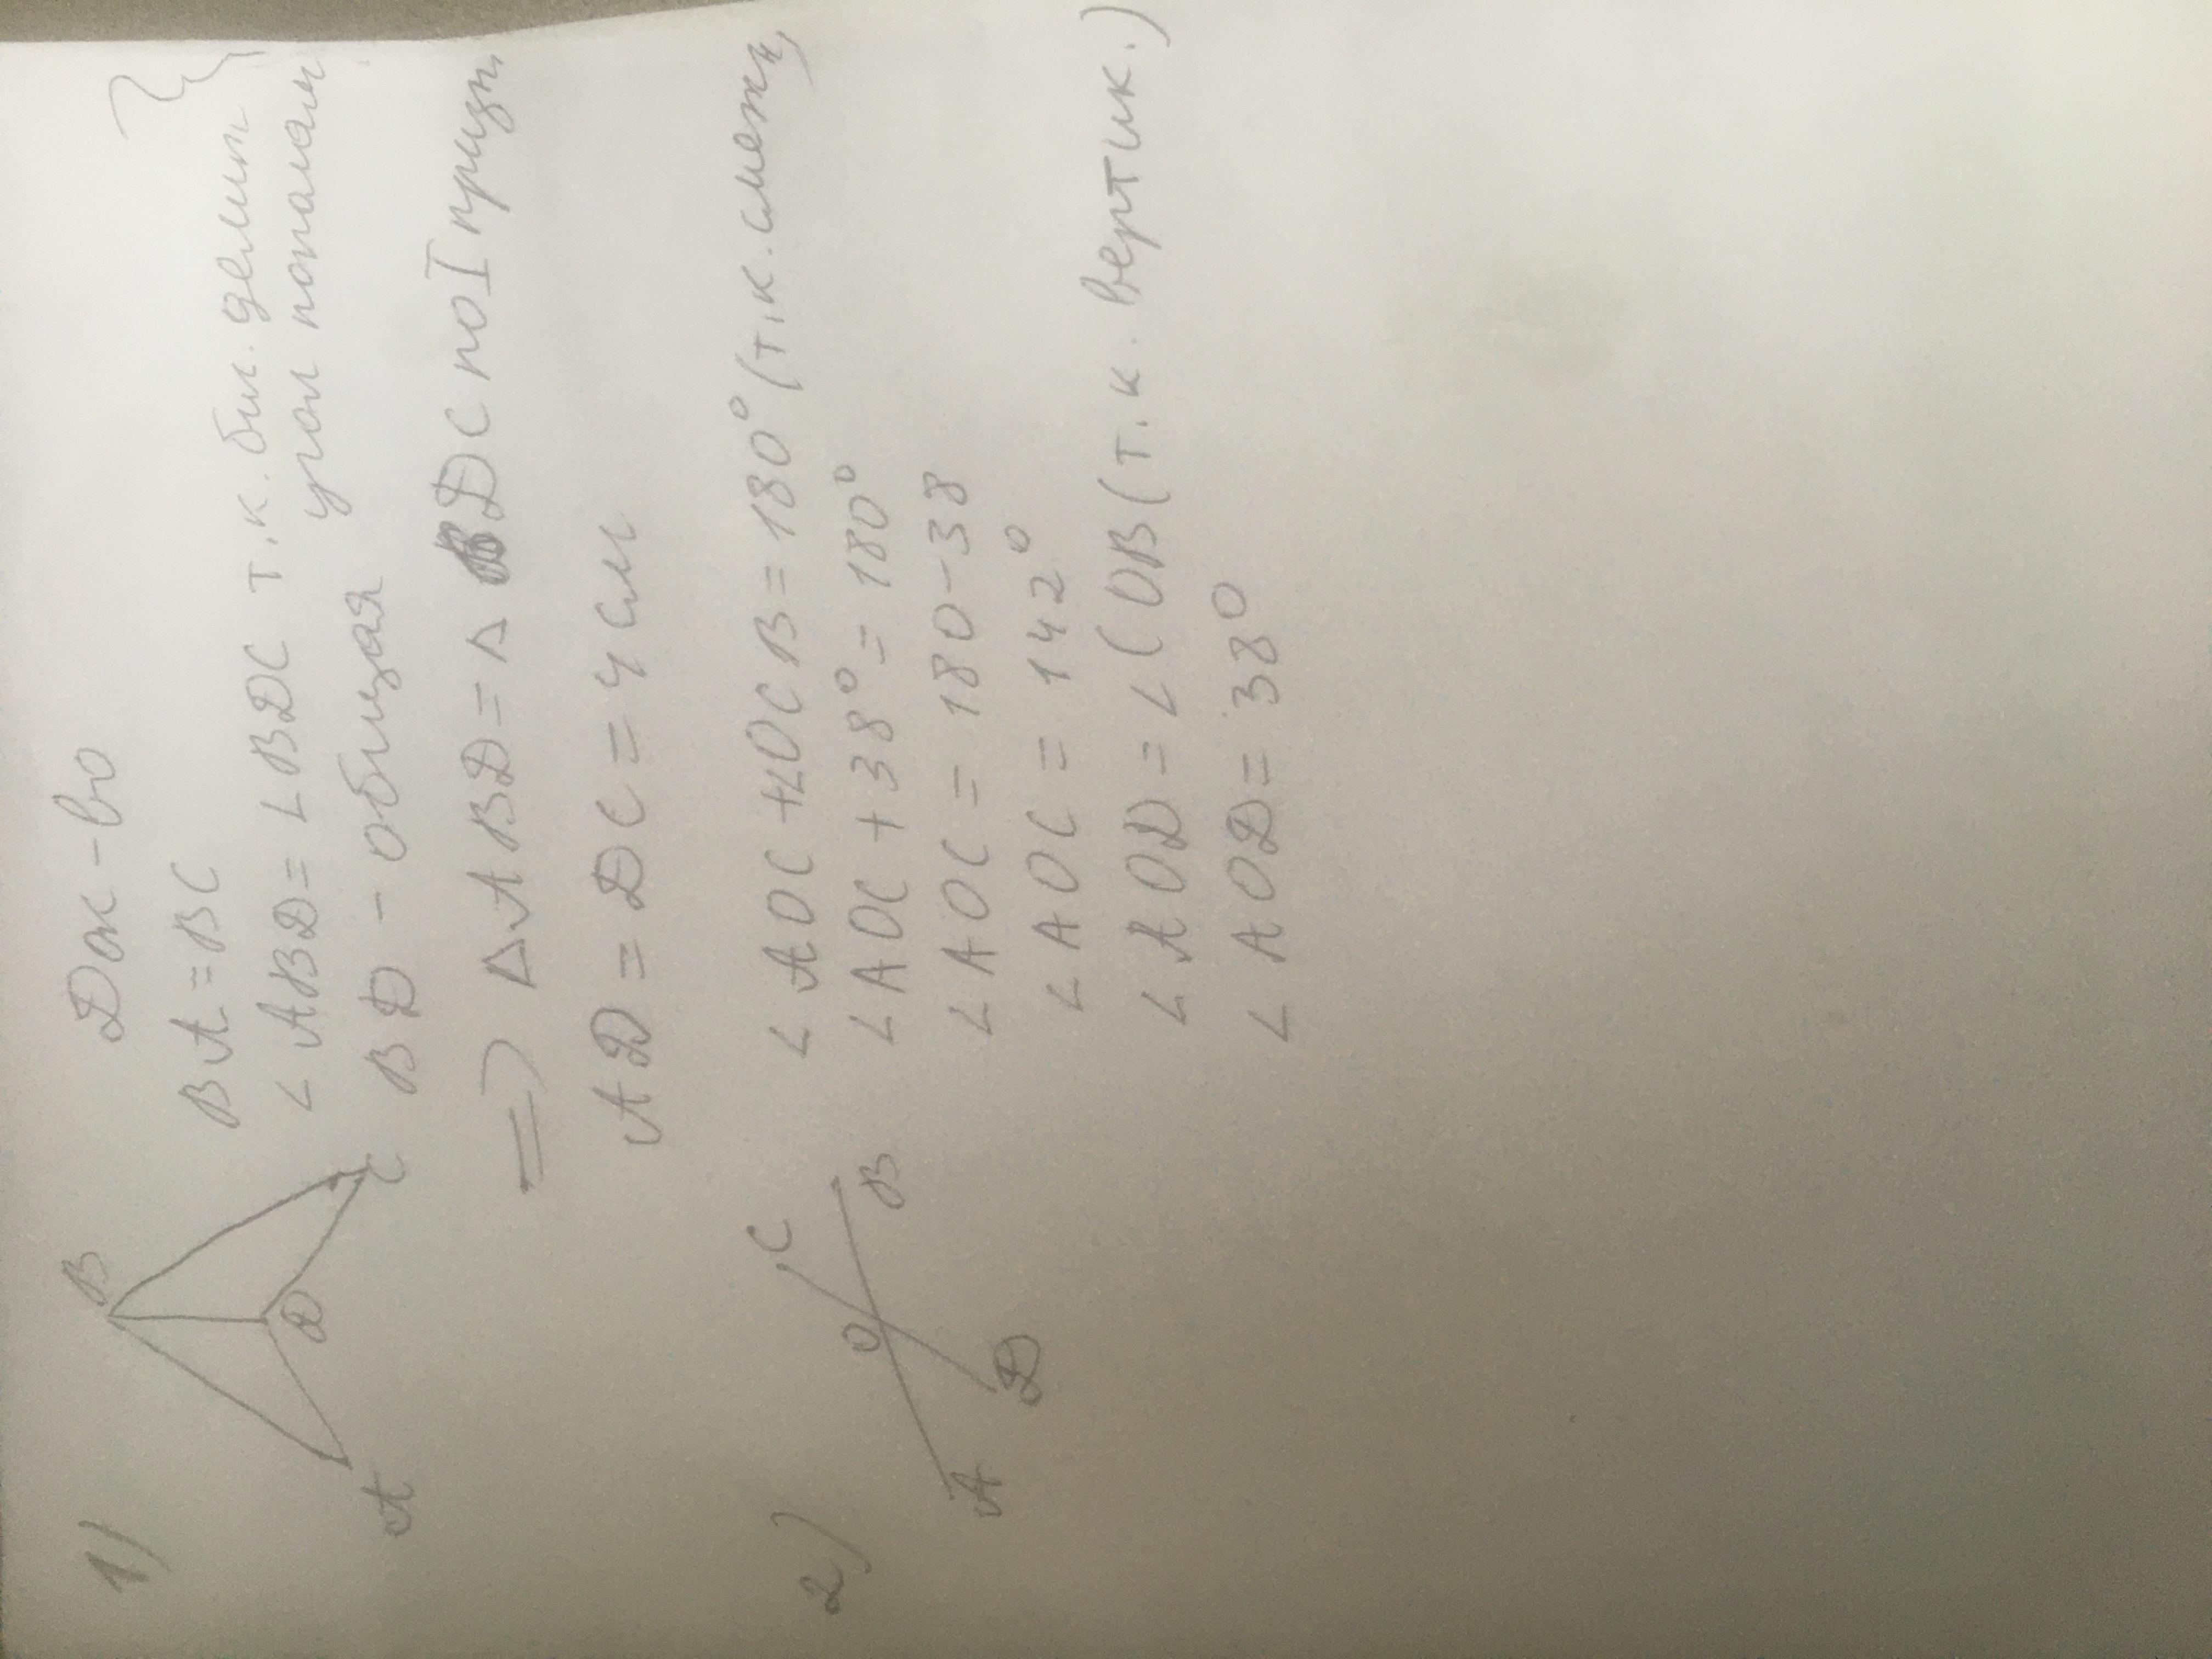 1)
Док-во
B
A
D
C
BA = BC
∠ABD = ∠BDC т.к. бис. делит
угол пополам
BD - общая
=> △ABD = △BDC по I призн.
AD = DC = 4 см
2)
C
O
B
A
D
∠AOC + ∠OCB = 180° (т.к. смежн.)
∠AOC + 38° = 180°
∠AOC = 180 - 38
∠AOC = 142°
∠AOD = ∠COB (т.к. вертик.)
∠AOD = 38°